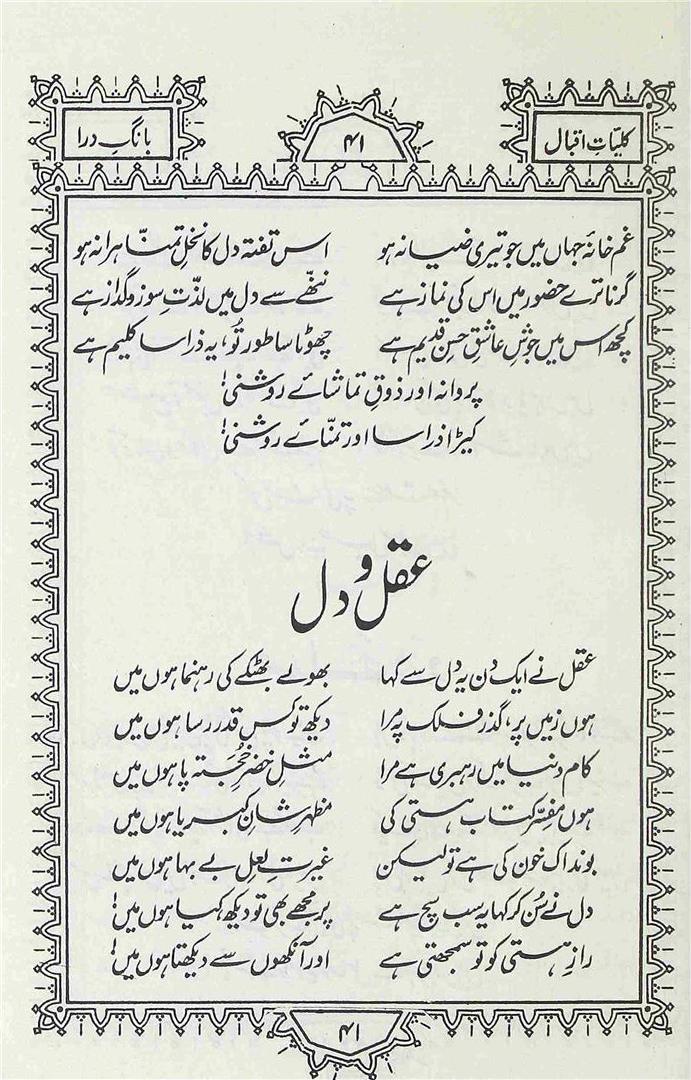 کلیّاتِ اقبال
۴۱
بانگِ درا
غم خانۂ جہاں میں جو تیری ضیا نہ ہو اس تفتہ دل کا نخلِ تمنّا ہرا نہ ہو
گرنا ترے حضور میں اس کی نماز ہے ننّھے سے دل میں لذّتِ سوز و گداز ہے
کچھ اس میں جوشِ عاشقِ حسنِ قدیم ہے چھوٹا سا طور تُو، یہ ذرا سا کلیم ہے
پروانہ اور ذوقِ تماشائے روشنی!
کیڑا ذرا سا اور تمنّائے روشنی!
عقل و دل
عقل نے ایک دن یہ دل سے کہا بھولے بھٹکے کی رہنما ہوں میں
ہوں زمیں پر، گذر فلک پہ مرا دیکھ تو کس قدر رسا ہوں میں
کام دنیا میں رہبری ہے مرا مثلِ خضرِ خجستہ پا ہوں میں
ہوں مفسّر کتابِ ہستی کی مظہرِ شانِ کبریا ہوں میں
بوند اک خون کی ہے تو لیکن غیرتِ لعلِ بے بہا ہوں میں
دل نے سُن کر کہا یہ سب سچ ہے پر مجھے بھی تو دیکھ کیا ہوں میں!
رازِ ہستی کو تو سمجھتی ہے اور آنکھوں سے دیکھتا ہوں میں!
۴۱